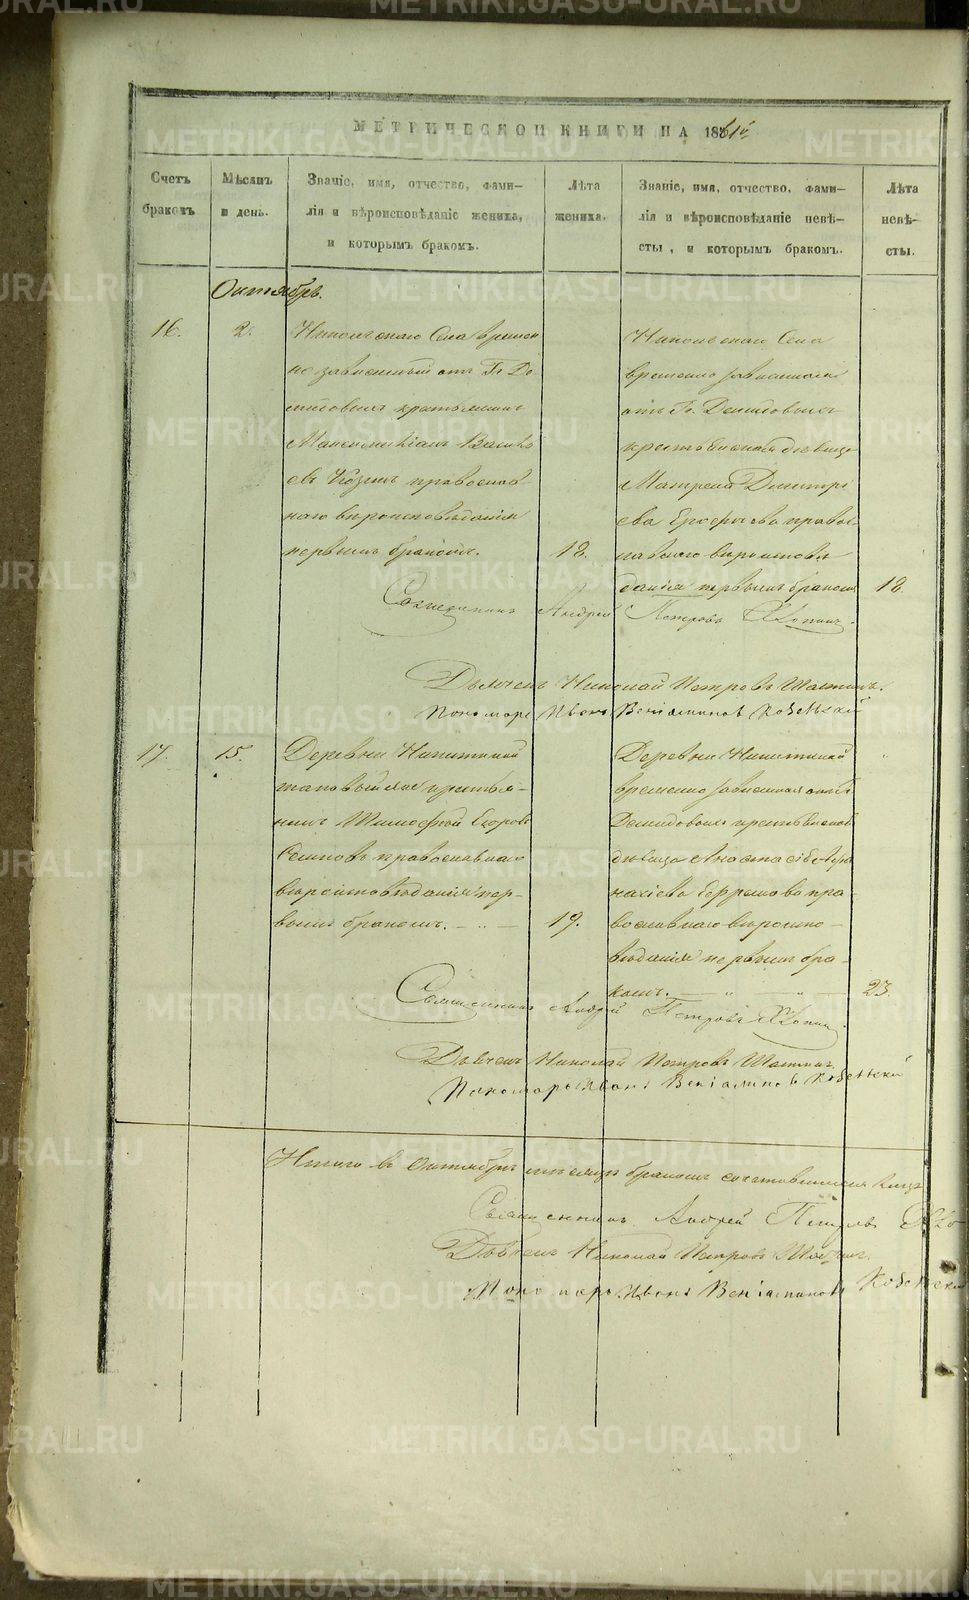 METRIKI.GASO-URAL.RU
МЕТРИЧЕСКОЙ КНИГИ НА 1861й
Счетъ браковъ.
Мѣсяцъ и день.
Званіе, имя, отчество, фами-
лія и вѣроисповѣданіе жениха,
и которымъ бракомъ.
Лѣта
жениха.
Званіе, имя, отчество, фами-
лія и вѣроисповѣданіе невѣ-
сты, и которымъ бракомъ.
Лѣта
невѣ-
сты.
Октябрь.
16.
2.
Никольскаго Села времен
но зависимый отъ Гг. Де
мидовыхъ крестьянинъ
Максимиліанъ Василь
евъ православ
наго вѣроисповѣданія
первымъ бракомъ.
18.
Никольскаго Села
временно зависимаго
отъ Гг. Демидовыхъ
крестьянская дѣвица
Матрена Димитрі
ева Ерофѣева право
славнаго вѣроисповѣ
данія первымъ бракомъ
18.
Священникъ Андрей Петровъ
Дьячекъ Николай Петровъ
Пономарь Иванъ Веніаминовъ
17.
15.
Деревни
таковый же крестья-
нинъ Тимофей Егоровъ
православнаго
вѣроисповѣданія пер-
вымъ бракомъ.
19.
Деревни
временно зависимая отъ
Демидовыхъ крестьянская
дѣвица Анастасія
Ефремова пра-
вославнаго вѣроиспо-
вѣданія первымъ бра-
комъ.
23.
Священникъ Андрей Петровъ
Дьячекъ Николай Петровъ
Пономарь Иванъ Веніаминовъ
Итого въ Октябрѣ мѣсяцѣ бракомъ сочетавшихся
Священникъ Андрей Петровъ
Дьячекъ Николай Петровъ
Пономарь Иванъ Веніаминовъ